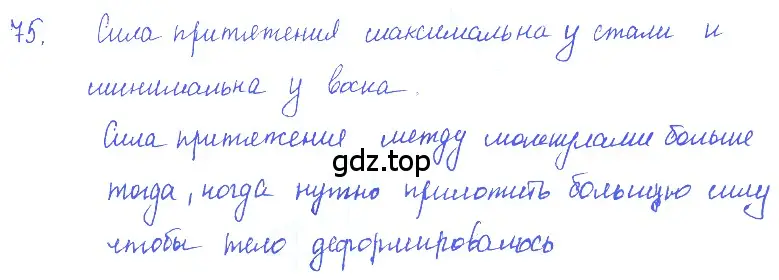 75. Сила притяжения максимальна у стали и
минимальна у воска.
Сила притяжения между молекулами больше
gdz.top
тогда, когда нужно приложить большую силу
чтобы тело деформировалось